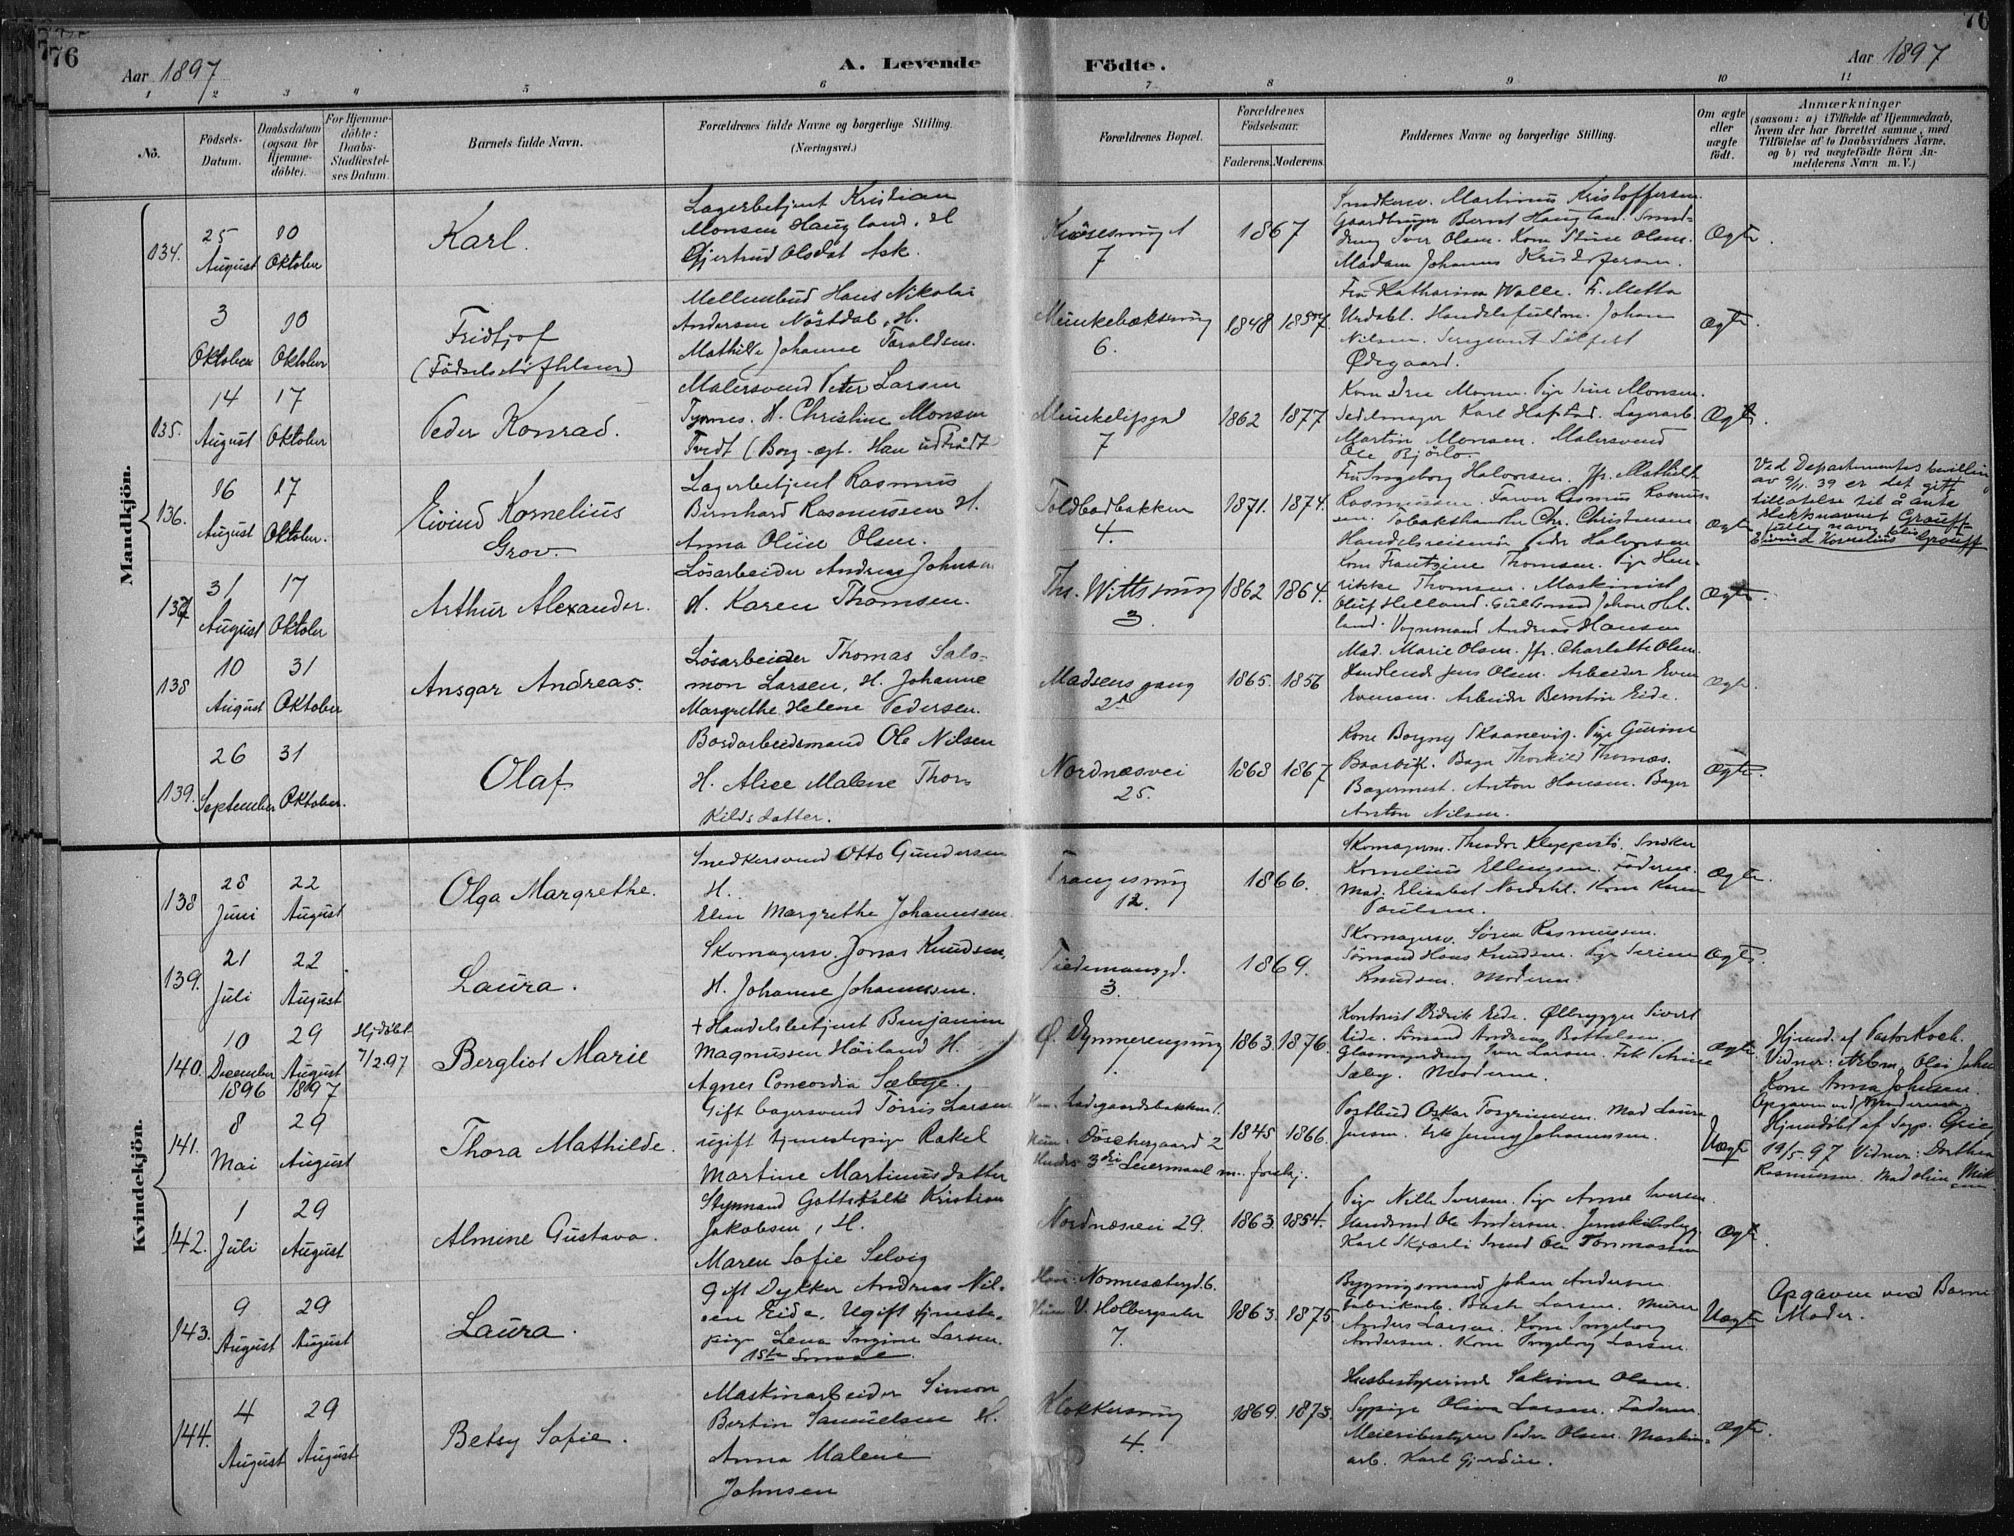 76
76
Aar 1897
A. Levende
Födte.
Aar 1897
1 2 3 4 5 6 7 8 9 10 11
No.
Födsels-Datum.
Daabsdatum (ogsaa for Hjemme-döbte).
For Hjemme-döbte: Daabs-Stadfæstel-ses Datum.
Barnets fulde Navn.
Forældrenes fulde Navne og borgerlige Stilling. (Næringsvei.)
Forældrenes Bopæl.
Forældrenes Födselsaar.
Faderens. Moderens.
Faddernes Navne og borgerlige Stilling.
Om ægte eller uægte födt.
Anmærkninger
(saasom: a) i Tilfælde af Hjemmedaab, hvem der har forrettet samme, med Tilföielse af to Daabsvidners Navne, og b) ved uægtefödte Börn An-melderens Navn m. V.)
Mandkjön.
134.
25 August
10 Oktober
Karl.
Lagerbetjent Kristian
Monsen Haugland. H
Gjertrud Olsdat Ask.
7
1867
Snedkersv. Martinus Kristoffersen
Gaardbruger Bernt Haugland. Smed-
dreng Iver Olsen. Kone Olsen.
Madam Johanna Kristofersen.
Ægte.
3 Oktober
10 Oktober
Fridtjof
Hans Nikolai
Andersen Nöstdal, H.
Mathilde Johanne Taraldsen.
Munkebæksmug
6.
1848 1857.
Fru Katharina Walle. F. Metta
Urdahl. Handelsfuldm. Johan
Nilsen. Sergeant
Ødegaard.
Ægte
135.
14 August
17 Oktober
Peder Konrad.
Malersvend Peter Larsen
Tynnes. H. Christine Monsen
Tvedt (Borg. ægt. Han udtraadt
7
1862 1877
Kone Monsen. Pige Monsen.
Karl Hafstad. Lagerarb
Martin Monsen. Malersvend
Ole Bjørlo.
Ægte.
136.
16 August
17 Oktober.
Eivind Kornelius
Grov.
Lagerbetjent Rasmus
Bernhard Rasmussen H.
Anna Oline Olsen.
Toldbodbakken
4.
1871. 1874.
Fru Ingeborg Halvorsen. Jfr. Mathilde
Rasmussen. Rasmus Rasmus-
sen. Tobakshandler Chr. Christensen
Handelsreisende Peder Halvorsen
Ægte
Ved Departementets bevilling
av 9/11. 39 er det gitt
tillatelse til å anta
slektsnavnet Grauff
fulle navn blir
Eivind Kornelius Grauff
137
31 August
17 Oktober
Arthur Alexander.
Lösarbeider Andreas Johnsen
H. Karen Thomsen.
Th. Wittsmug
3.
1862 1864.
Kone Frantzine Thomsen. Pige Hen-
rikke Thomsen. Maskinist
Oluf Helland. Gulsmed Johan Hel-
land. Vognmand Andreas Hansen
Ægte.
138
10 August
31 Oktober
Ansgar Andreas.
Lösarbeider Thomas Salo-
mon Larsen, H. Johanne
Margrethe Helene Pedersen.
Madsens gang
2A
1865. 1856
Mad. Marie Olsen. Jfr. Charlotte Olsen.
Jens Olsen. Arbeider Even
Evensen. Arbeider Berntin Eide.
Ægte.
139.
26 September
31 Oktober.
Olaf
Bordarbeidsmand Ole Nilsen
H. Alice Malene Thor-
kilds datter.
Nordnæsvei
25.
1868 1867
Kone Borgny Skaanevig. Pige Gurine
Baarvik. Bager Thorkild Thomas.
Bagermest. Anton Hansen. Bager
Anton Nilsen.
Ægte.
Kvindekjön.
138
28 Juni
22 August
Olga Margrethe.
Snedkersvend Otto Gundersen
H.
Elen Margrethe Johannessen.
Trangesmug
12.
1866.
Skomagerm. Theodor Kleppestö. Snedker
Kornelius Ellingsen. Faderen.
Mad. Elisabet Nordahl. Kone Karen
Paulsen.
Ægte.
139.
21 Juli
22 August
Laura.
Skomagersv. Jonas Knudsen,
H. Johanne Johannessen.
Tiedemansgd.
3.
1869.
Skomagersv. Sören Rasmussen.
Sömand Hans Knudsen. Pige Serine
Knudsen. Moderen.
Ægte.
140.
10 December 1896
29 August 1897
Hjdöbt.
7/2.97
Bergliot Marie
+ Handelsbetjent Benjamin
Magnussen Höiland H.
Agnes Concordia Sæbye.
Ø. Dynnerengsmug
1.
1863. 1876.
Kontorist Didrik Eide. Ølbrygger Sivert
Eide. Sömand Andreas Bottolsen.
Iver Larsen. Frk
Sæby. Moderen.
Ægte
Hjemd. af Pastor Koch.
Vidner: Arbm. Olai Johnsen
Kone Anna Johnsen.
Opgaven ved Moderen
141.
8 Mai
29 August
Thora Mathilde.
Gift bagersvend Törris Larsen
ugift tjenestepige Rakel
Martine Martinusdatter
Han. Ladegaardsbakken 1.
Hun. Döschergaard 2
Hendes 3die Leiermaal m. forskj.
1845 1866.
Postbud Oskar Torgrimsen. Mad Laura
Jensen. Frk Jenny Johannessen.
Uægte
Hjemdöbt af Grieg
19/5-97 Vidner: Dorthea
Rasmussen. Mad Mik-
142.
1 Juli
29 August
Almine Gustava.
Styrmand Gottskalk Kristian
Jakobsen, H.
Maren Sofie Selvig
Nordnæsveien 29.
1863. 1854.
Pige Nille Iversen. Pige Anne Iversen
Ole Andersen. Jernskibsbygger
Karl Smed Ole Tommassen
Ægte.
143.
9 August
29 August
Laura.
Gift Dykker Andreas Nil-
sen Eide. Ugift tjeneste-
pige Lena Ingine Larsen.
Han. Nonnesætergd. 6.
Hun V. Holbergsalm
7.
1863. 1875.
Bygningsmand Johan Andersen
Fabrikarb. Larsen. Murer
Anders Larsen. Kone Ingeborg
Andersen. Kone Ingeborg Larsen.
Uægte
Opgaven ved Barnets
Moder.
144.
4 August
29 August
Betsy Sofie.
Maskinarbeider Simon
Bertin Samuelsen H.
Anna Malene
Johnsen
Klokkersmug
4.
1869. 1873.
Husbestyrerinde Olsen.
Sypige Oliva Larsen. Faderen.
Meieribestyrer Peder Olsen. Maskin-
arb. Karl
Ægte.